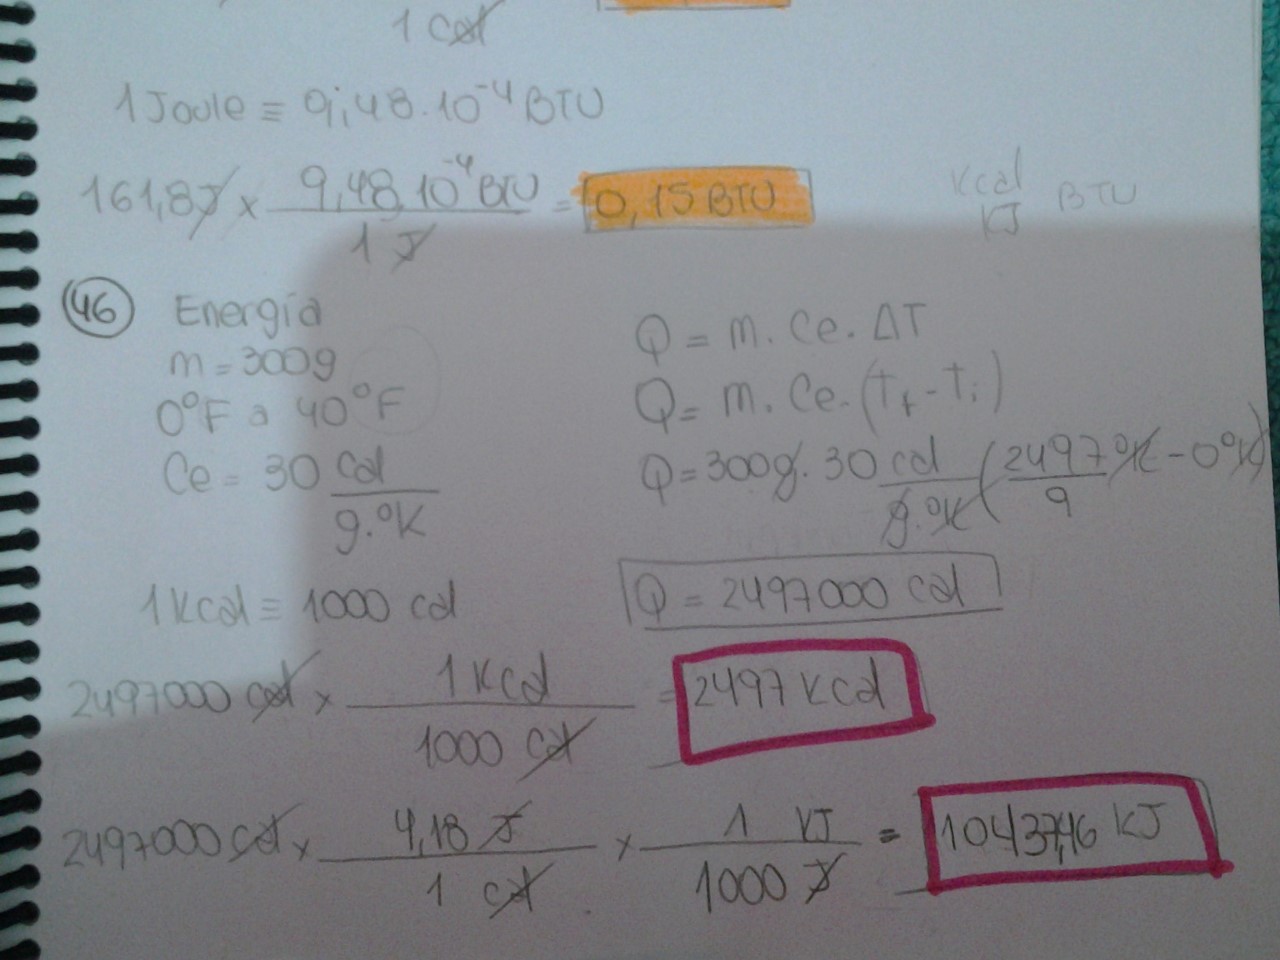 1 cal
1 Joule ≡ 9,48.10⁻⁴ BTU
161,8 J x 9,48.10⁻⁴ BTU / 1 J = 0,15 BTU
Kcal / KJ BTU
46 Energía
m = 300g
0°F a 40°F
Ce = 30 cal / g.°K
Q = m. Ce. ΔT
Q = m. Ce. (Tf - Ti)
Q = 300g. 30 cal / g.°K (2497 °K / 9 - 0°K)
1 Kcal ≡ 1000 cal
Q = 2497000 cal
2497000 cal x 1 Kcal / 1000 cal = 2497 Kcal
2497000 cal x 4,18 J / 1 cal x 1 KJ / 1000 J = 10437,46 KJ